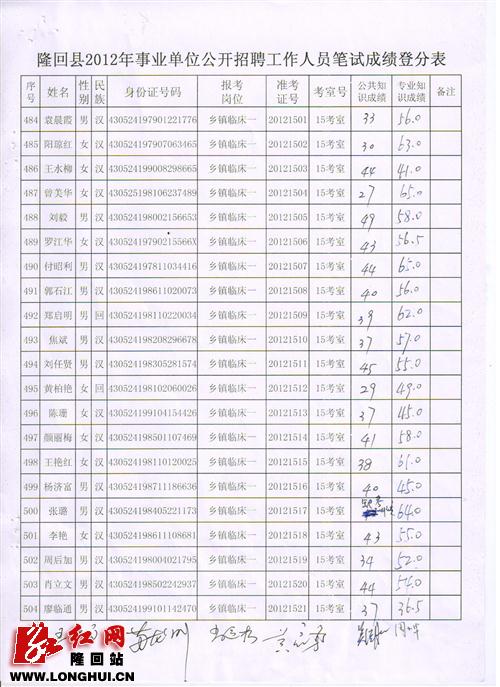 隆回县2012年事业单位公开招聘工作人员笔试成绩登分表
序号 姓名 性别 民族 身份证号码 报考岗位 准考证号 考室号 公共知识成绩 专业知识成绩 备注
484 袁晨霞 男 汉 430524197901221776 乡镇临床一 20121501 15考室 33 56.0
485 阳琼红 女 汉 430524197907063465 乡镇临床一 20121502 15考室 30 63.0
486 王水柳 女 汉 430524199008298665 乡镇临床一 20121503 15考室 44 41.0
487 曾美华 女 汉 430525198106237489 乡镇临床一 20121504 15考室 27 65.0
488 刘毅 男 汉 430524198002156653 乡镇临床一 20121505 15考室 49 58.0
489 罗江华 女 汉 43052419790215566X 乡镇临床一 20121506 15考室 43 56.5
490 付昭利 男 汉 430524197811034416 乡镇临床一 20121507 15考室 44 65.0
491 郭石江 男 汉 430524198611020073 乡镇临床一 20121508 15考室 40 56.0
492 郑启明 男 回 430524198110220034 乡镇临床一 20121509 15考室 39 62.0
493 焦斌 男 汉 430524198208296678 乡镇临床一 20121510 15考室 37 57.0
494 刘任贤 男 汉 430524198305281574 乡镇临床一 20121511 15考室 45 55.0
495 黄柏艳 女 回 430524198102060026 乡镇临床一 20121512 15考室 29 49.0
496 陈珊 女 汉 430524199104154426 乡镇临床一 20121513 15考室 37 45.0
497 颜丽梅 女 汉 430524198501107469 乡镇临床一 20121514 15考室 41 58.0
498 王艳红 女 汉 430524198110120025 乡镇临床一 20121515 15考室 38 61.0
499 杨济富 男 汉 430524198711186636 乡镇临床一 20121516 15考室 40 45.0
500 张璐 男 汉 430524198405221173 乡镇临床一 20121517 15考室 64.0
501 李艳 女 汉 430524198611108681 乡镇临床一 20121518 15考室 43 55.0
502 周后加 男 汉 430524198004021795 乡镇临床一 20121519 15考室 34 52.0
503 肖立文 男 汉 430524198502242937 乡镇临床一 20121520 15考室 44 54.0
504 廖临通 男 汉 430524199101142470 乡镇临床一 20121521 15考室 37 36.5
红网
隆回站
WWW.LONGHUI.CN